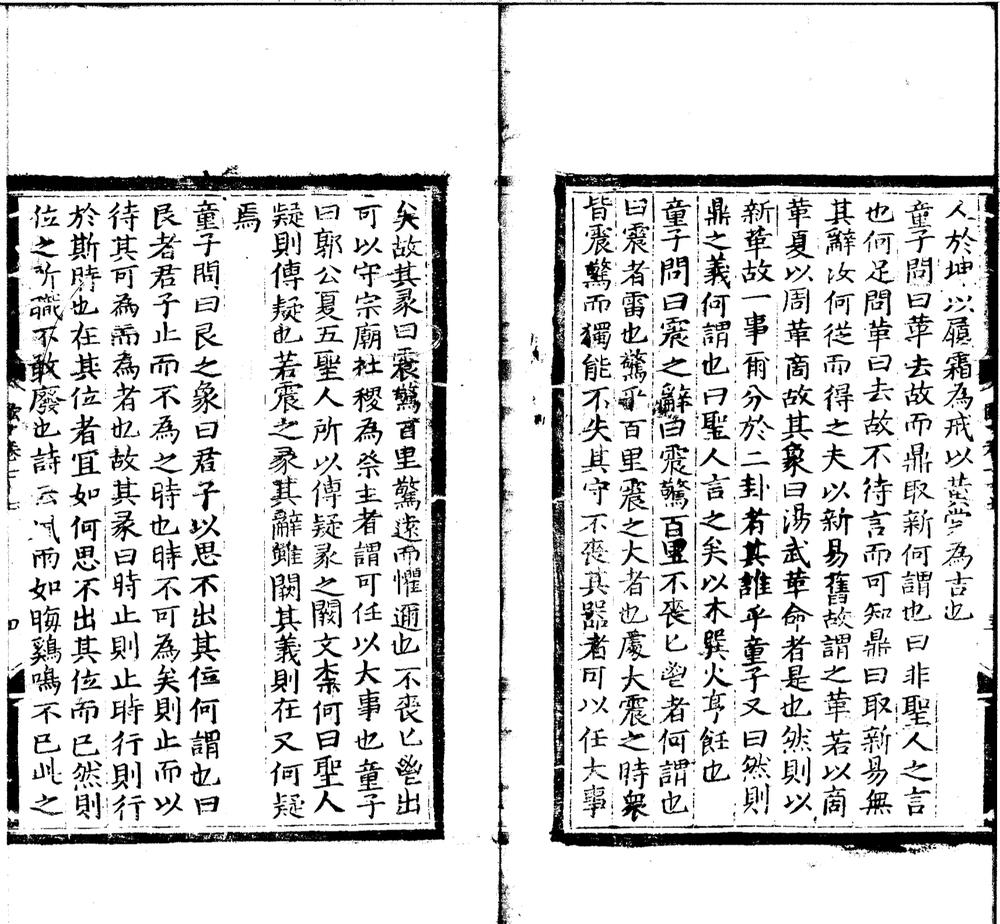 人於坤以履霜為戒以黃裳為吉也
童子問曰革去故而鼎取新何謂也曰非聖人之言
也何足問革曰去故不待言而可知鼎曰取新易無
其辭汝何從而得之夫以新易舊故謂之革若以商
革夏以周革商故其彖曰湯武革命者是也然則以
新革故一事爾分於二卦者其誰乎童子又曰然則
鼎之義何謂也曰聖人言之矣以木巽火亨飪也
童子問曰震之辭曰震驚百里不喪匕鬯者何謂也
曰震者雷也驚乎百里震之大者也處大震之時衆
皆震驚而獨能不失其守不喪其器者可以任大事
矣故其彖曰震驚百里驚遠而懼邇也不喪匕鬯出
可以守宗廟社稷為祭主者謂可任以大事也童子
曰郭公夏五聖人所以傳疑彖之闕文柰何曰聖人
疑則傳疑也若震之彖其辭雖闕其義則在又何疑
焉
童子問曰艮之象曰君子以思不出其位何謂也曰
艮者君子止而不為之時也時不可為矣則止而以
待其可為而為者也故其彖曰時止則止時行則行
於斯時也在其位者宜如何思不出其位而已然則
位之所職不敢廢也詩云風雨如晦雞鳴不已此之